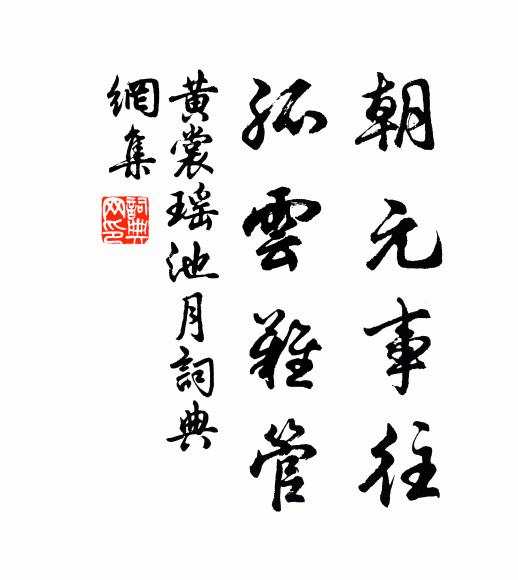 朝元事往
孤雲難管
黄裳瑶池月詞典
網集
詞典
网印